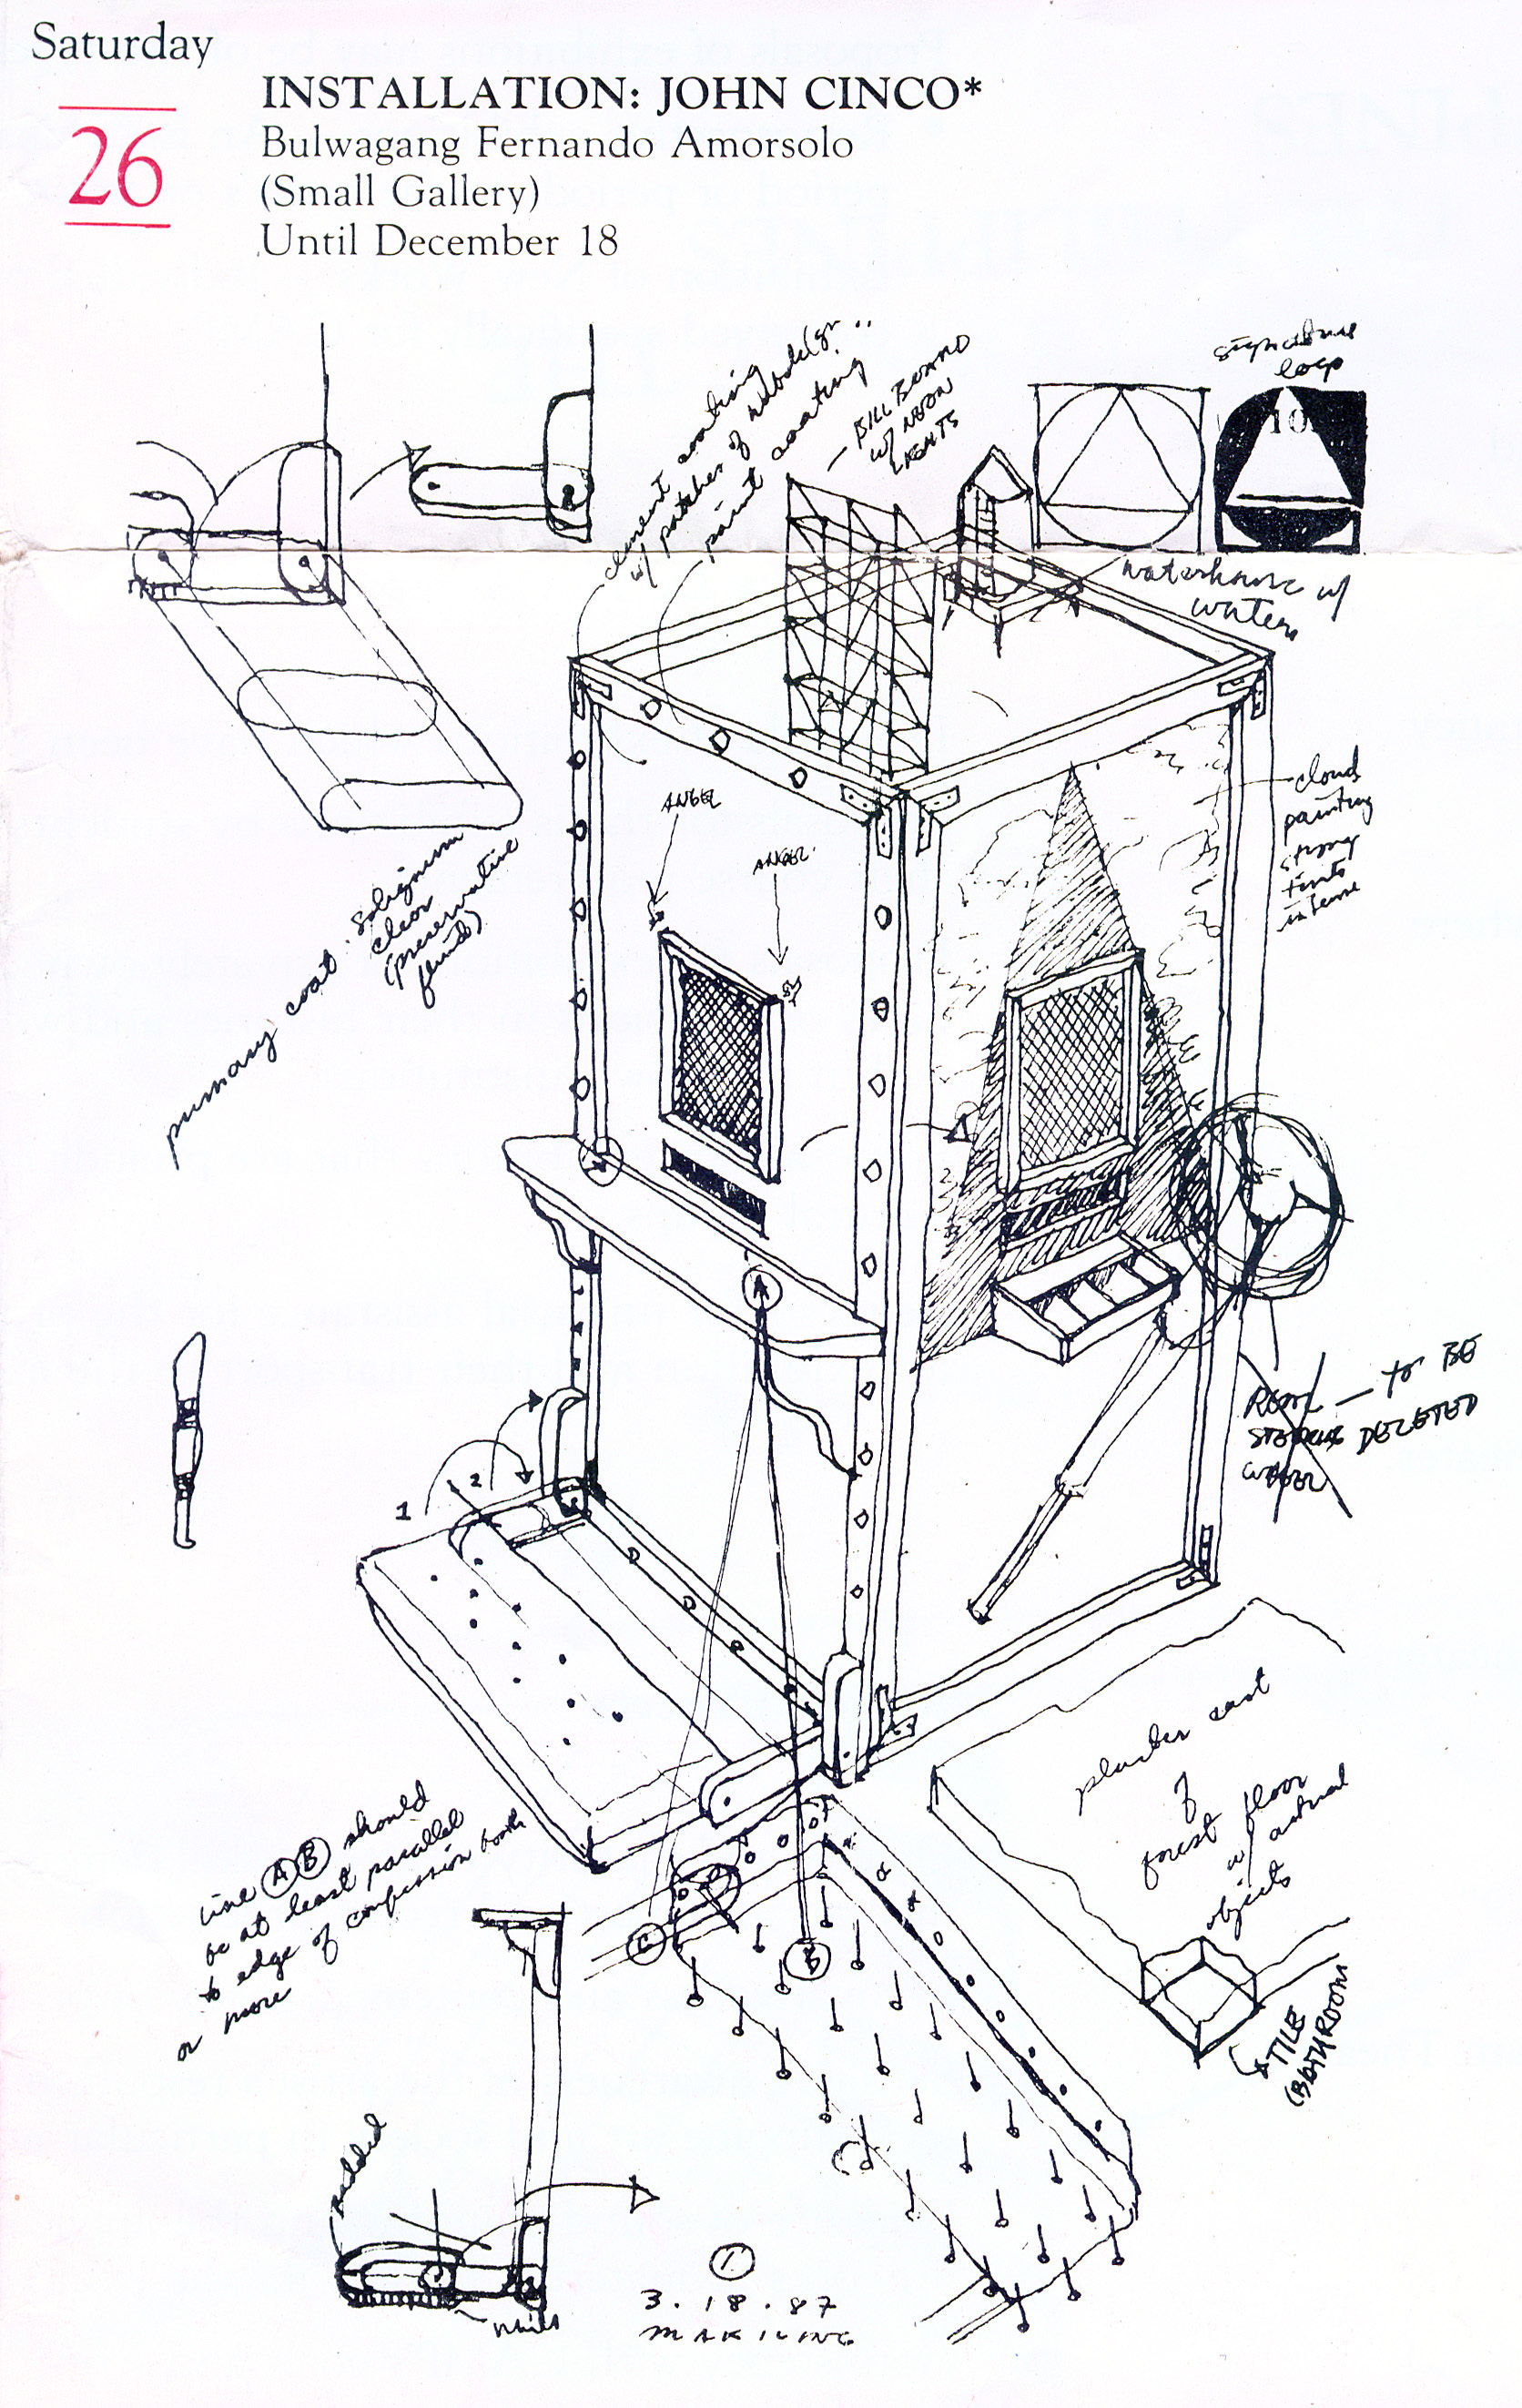 Saturday
26
INSTALLATION: JOHN CINCO*
Bulwagang Fernando Amorsolo
(Small Gallery)
Until December 18
cement coating
w/ patches of
paint coating
— BILLBOARD
w/ NEON
LIGHTS
signature
loop
10
waterhouse w/
water
ANGEL
ANGEL
cloud
painting
strong
tints
intense
primary coat. Solignum
clear
(preservative
fluid)
A
A
REAL — to BE
STEERING DELETED
WHEEL
1
2
plaster cast
of
forest floor
w/ actual
objects
TILE
(BATHROOM)
line A B should
be at least parallel
to edge of confession booth
or more
C
B
padded
nails
1
3.18.87
MAKILING